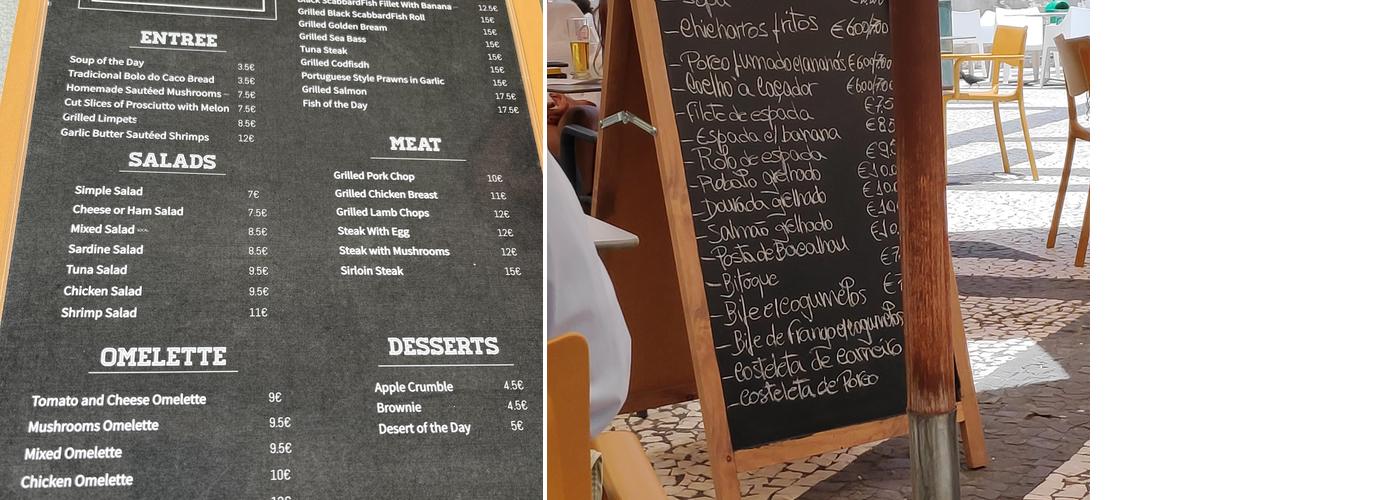 ENTREE
Soup of the Day 3.5€
Traditional Bolo do Caco Bread 3.5€
Homemade Sautéed Mushrooms 7.5€
Cut Slices of Prosciutto with Melon 7.5€
Grilled Limpets 8.5€
Garlic Butter Sautéed Shrimps 12€
SALADS
Simple Salad 7€
Cheese or Ham Salad 7.5€
Mixed Salad 8.5€
Sardine Salad 8.5€
Tuna Salad 9.5€
Chicken Salad 9.5€
Shrimp Salad 11€
OMELETTE
Tomato and Cheese Omelette 9€
Mushrooms Omelette 9.5€
Mixed Omelette 9.5€
Chicken Omelette 10€
Black ScabbardFish Fillet With Banana 12.5€
Grilled Black ScabbardFish Roll 15€
Grilled Golden Bream 15€
Grilled Sea Bass 15€
Tuna Steak 15€
Grilled Codfisdh 15€
Portuguese Style Prawns in Garlic 15€
Grilled Salmon 17.5€
Fish of the Day 17.5€
MEAT
Grilled Pork Chop 10€
Grilled Chicken Breast 11€
Grilled Lamb Chops 12€
Steak With Egg 12€
Steak with Mushrooms 12€
Sirloin Steak 15€
DESSERTS
Apple Crumble 4.5€
Brownie 4.5€
Desert of the Day 5€
Sopa
- Chicharros fritos
- Porco fumado c/ananás
- Coelho a caçador
- Filete de espada
- Espada c/ banana
- Rolo de espada
- Robalo grelhado
- Dourada grelhado
- Salmão grelhado
- Posta de Bacalhau
- Bitoque
- Bife c/cogumelos
- Bife de frango c/cogumelos
- costeleta de carneiro
- costeleta de Porco